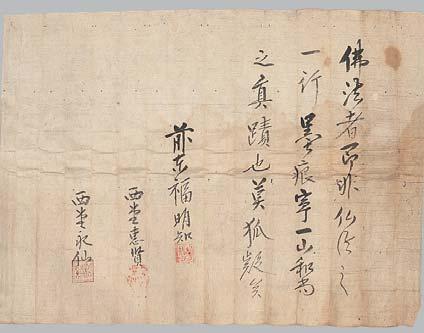 佛法者即非仏法之
一行墨痕寧一山和尚
之真蹟也莫狐疑矣
前東福明知
西堂惠賢
西堂永仙